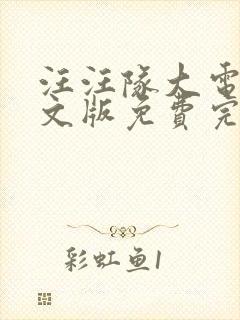 汪汪隊大電
文版免費完
彩虹鱼1